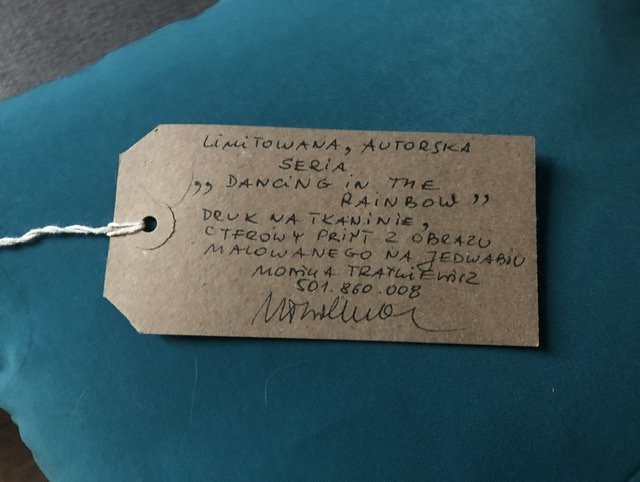 LIMITOWANA, AUTORSKA
SERIA
,, DANCING IN THE
RAINBOW ''
DRUK NA TKANINIE,
CYFROWY PRINT Z OBRAZU
MALOWANEGO NA JEDWABIU
MONIKA TRATKIEWICZ
501.860.008